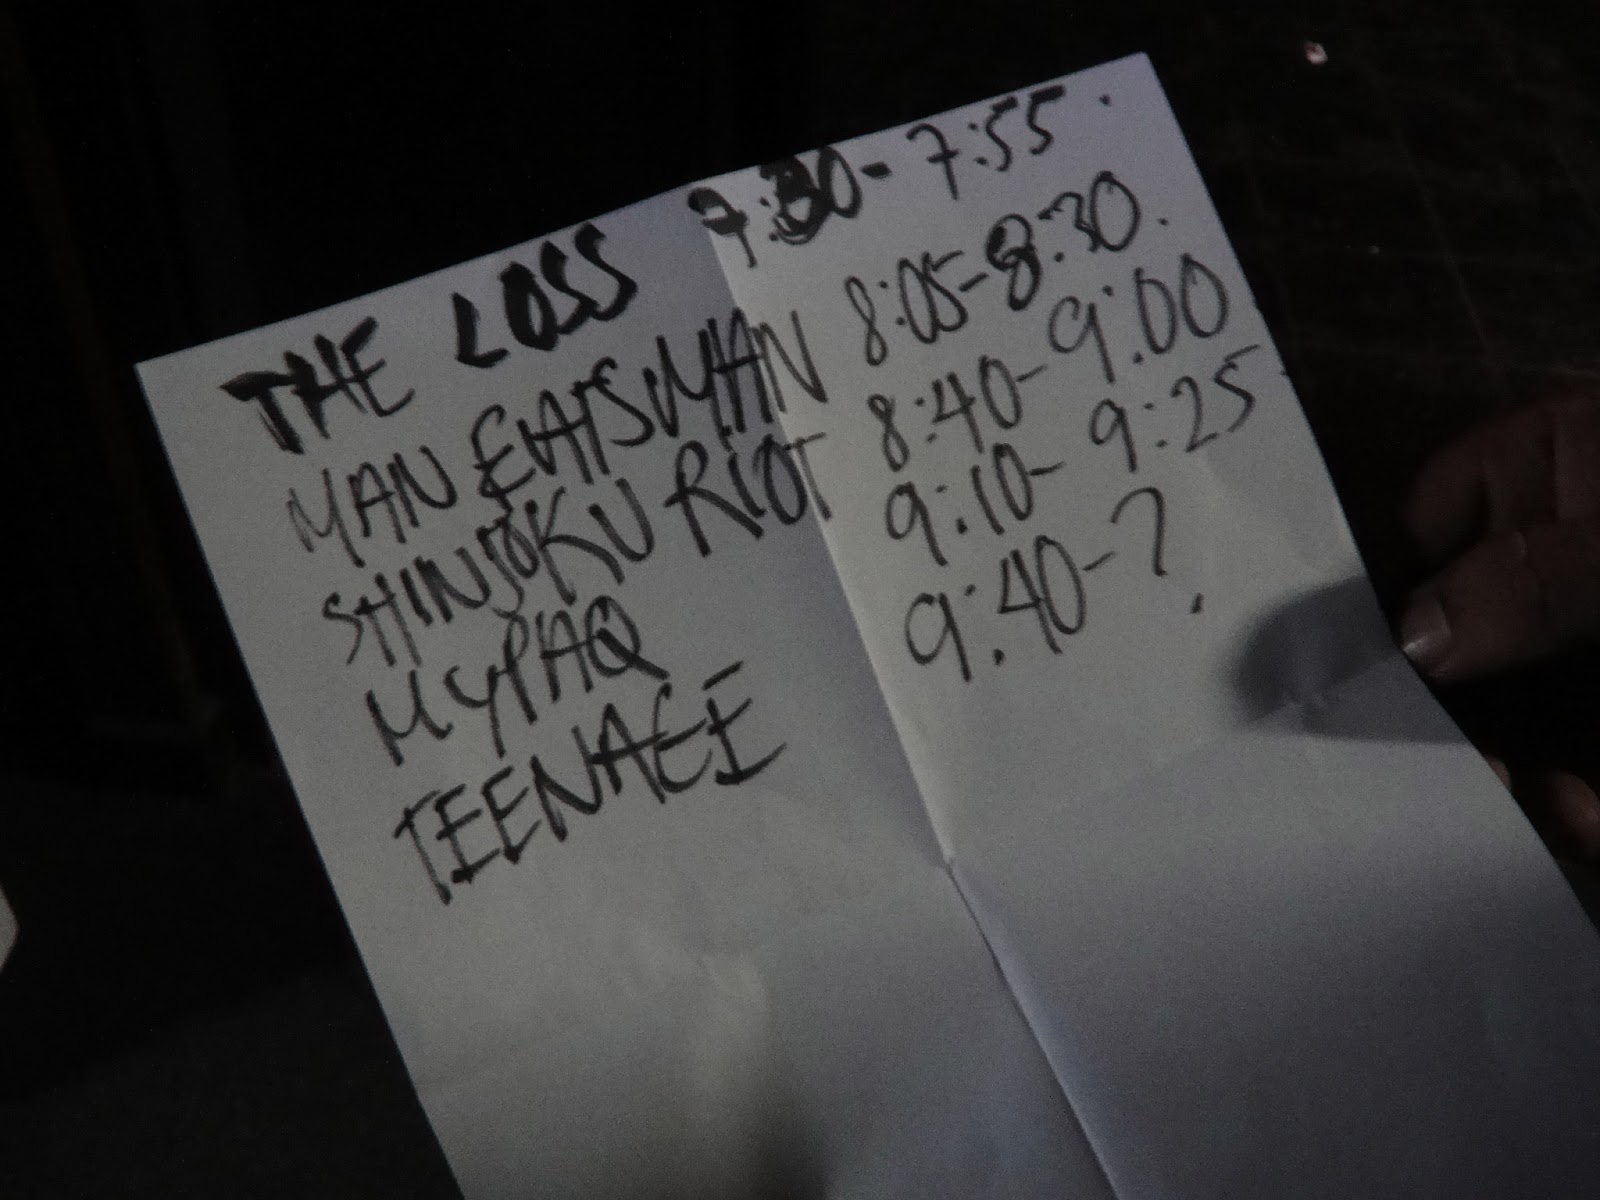 THE LOSS 7:30-7:55.
MAN EATS MAN 8:05-8:30.
SHINJOKU RIOT 8:40-9:00
MYPAQ 9:10-9:25
TEENAGE 9:40-?